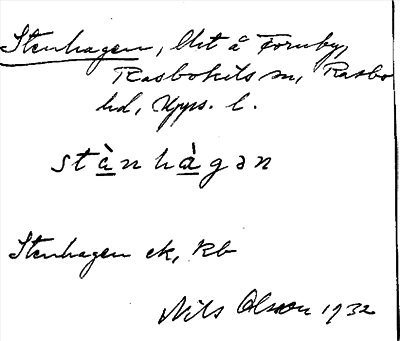 Stenhagen, Utt å Fornby,
Rasbokils sn, Rasbo
hd, Upps. l.
stä̀nhà̱gən
Stenhagen ek, Kb
Nils Olsson 1932